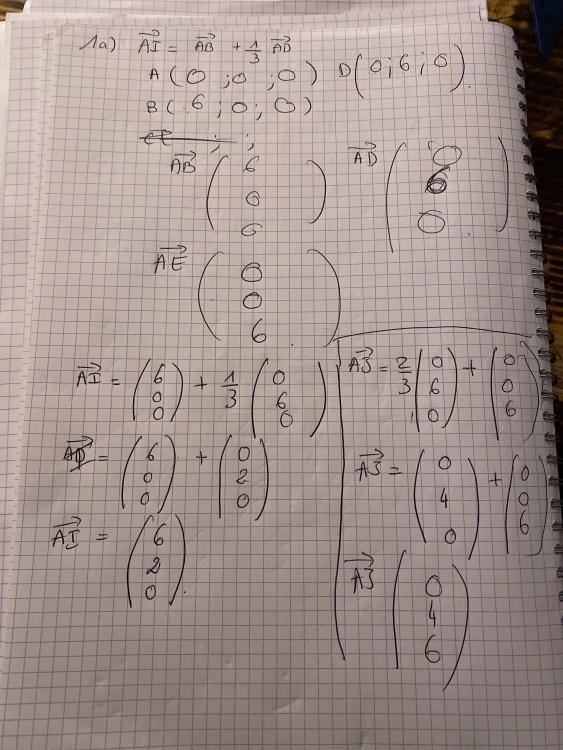 1a) AI→ = AB→ + 1/3 AD→
A ( 0 ; 0 ; 0 ) D ( 0 ; 6 ; 0 ).
B ( 6 ; 0 ; 0 )
; ;
AB→ ( 6 0 0 ) AD→ ( 0 6 0 )
AE→ ( 0 0 6 )
AI→ = ( 6 0 0 ) + 1/3 ( 0 6 0 )
AI→ = ( 6 0 0 ) + ( 0 2 0 )
AI→ = ( 6 2 0 ).
AJ→ = 2/3 ( 0 6 0 ) + ( 0 0 6 )
AJ→ = ( 0 4 0 ) + ( 0 0 6 )
AJ→ ( 0 4 6 )